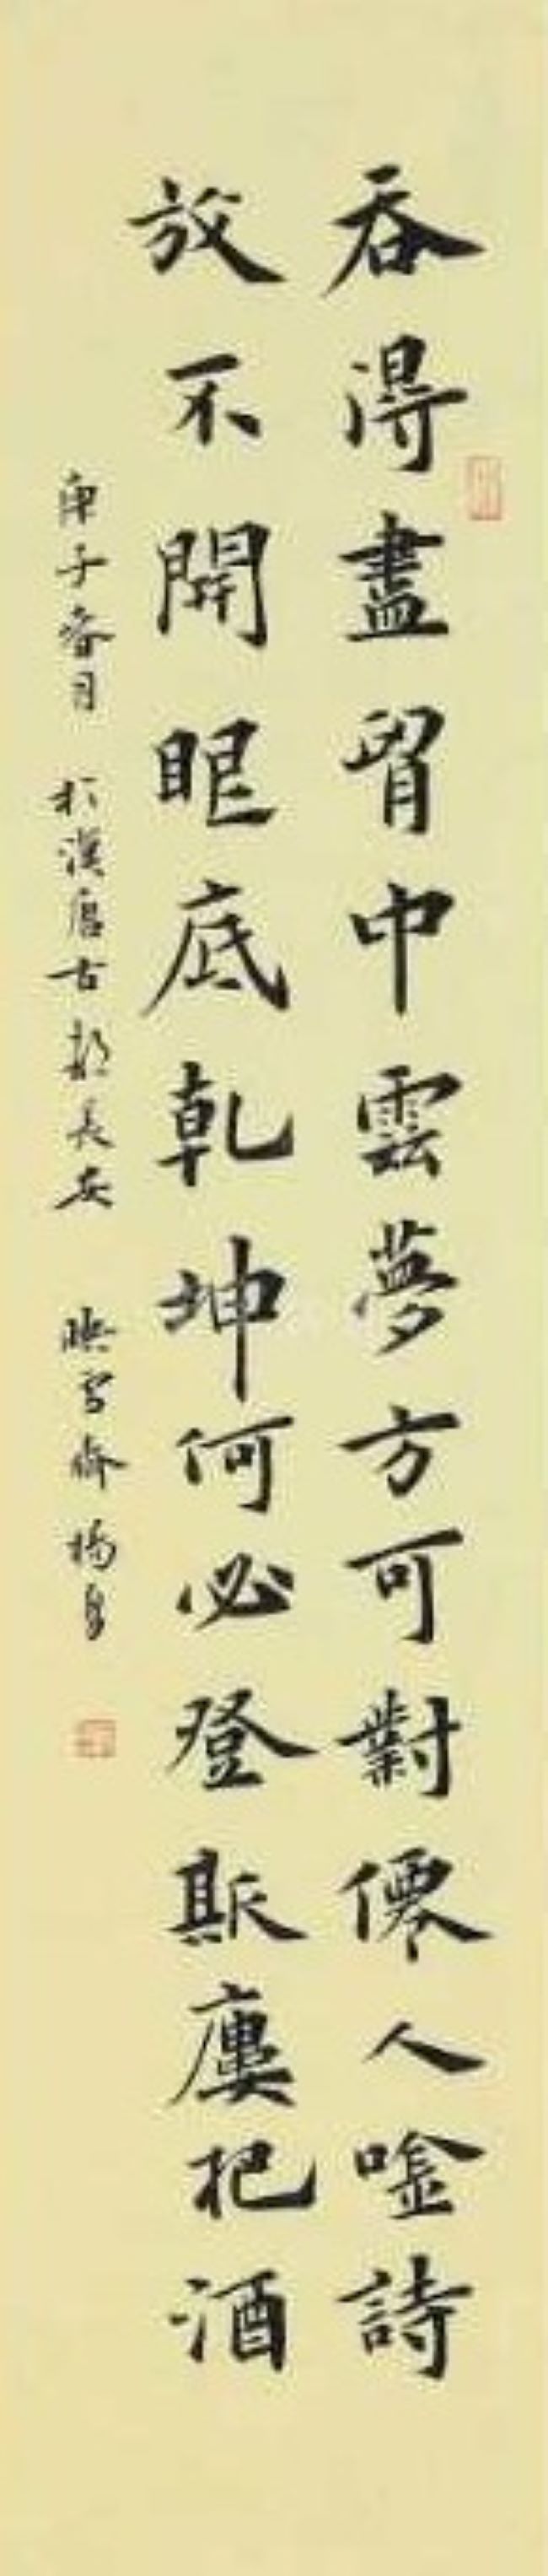 吞得盡胷中雲夢方可對僊人唫詩
放不開眼底乾坤何必登斯廔把酒
庚子春月 於漢唐古都長安 映雪齋 楊